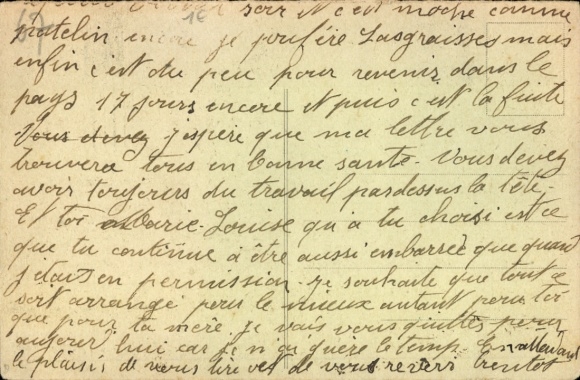 soir et c'est moche comme
patelin encore je préfère Lasgraisses mais
enfin c'est du peu pour revenir dans le
pays 17 jours encore et puis c'est la fuite
Vous devez j'espère que ma lettre vous
trouvera tous en bonne santé. Vous devez
avoir toujours du travail par dessus la tête.
Et toi Marie-Louise qu'a tu choisi est ce
que tu continue à être aussi embarrée que quand
j'étais en permission. Je souhaite que tout ce
soit arrangé pour le mieux autant pour toi
que pour ta mère. Je vais vous quitter pour
aujourd'hui car je n'ai guère le temp. En attendant
le plaisir de vous lire et de vous revoir bientôt